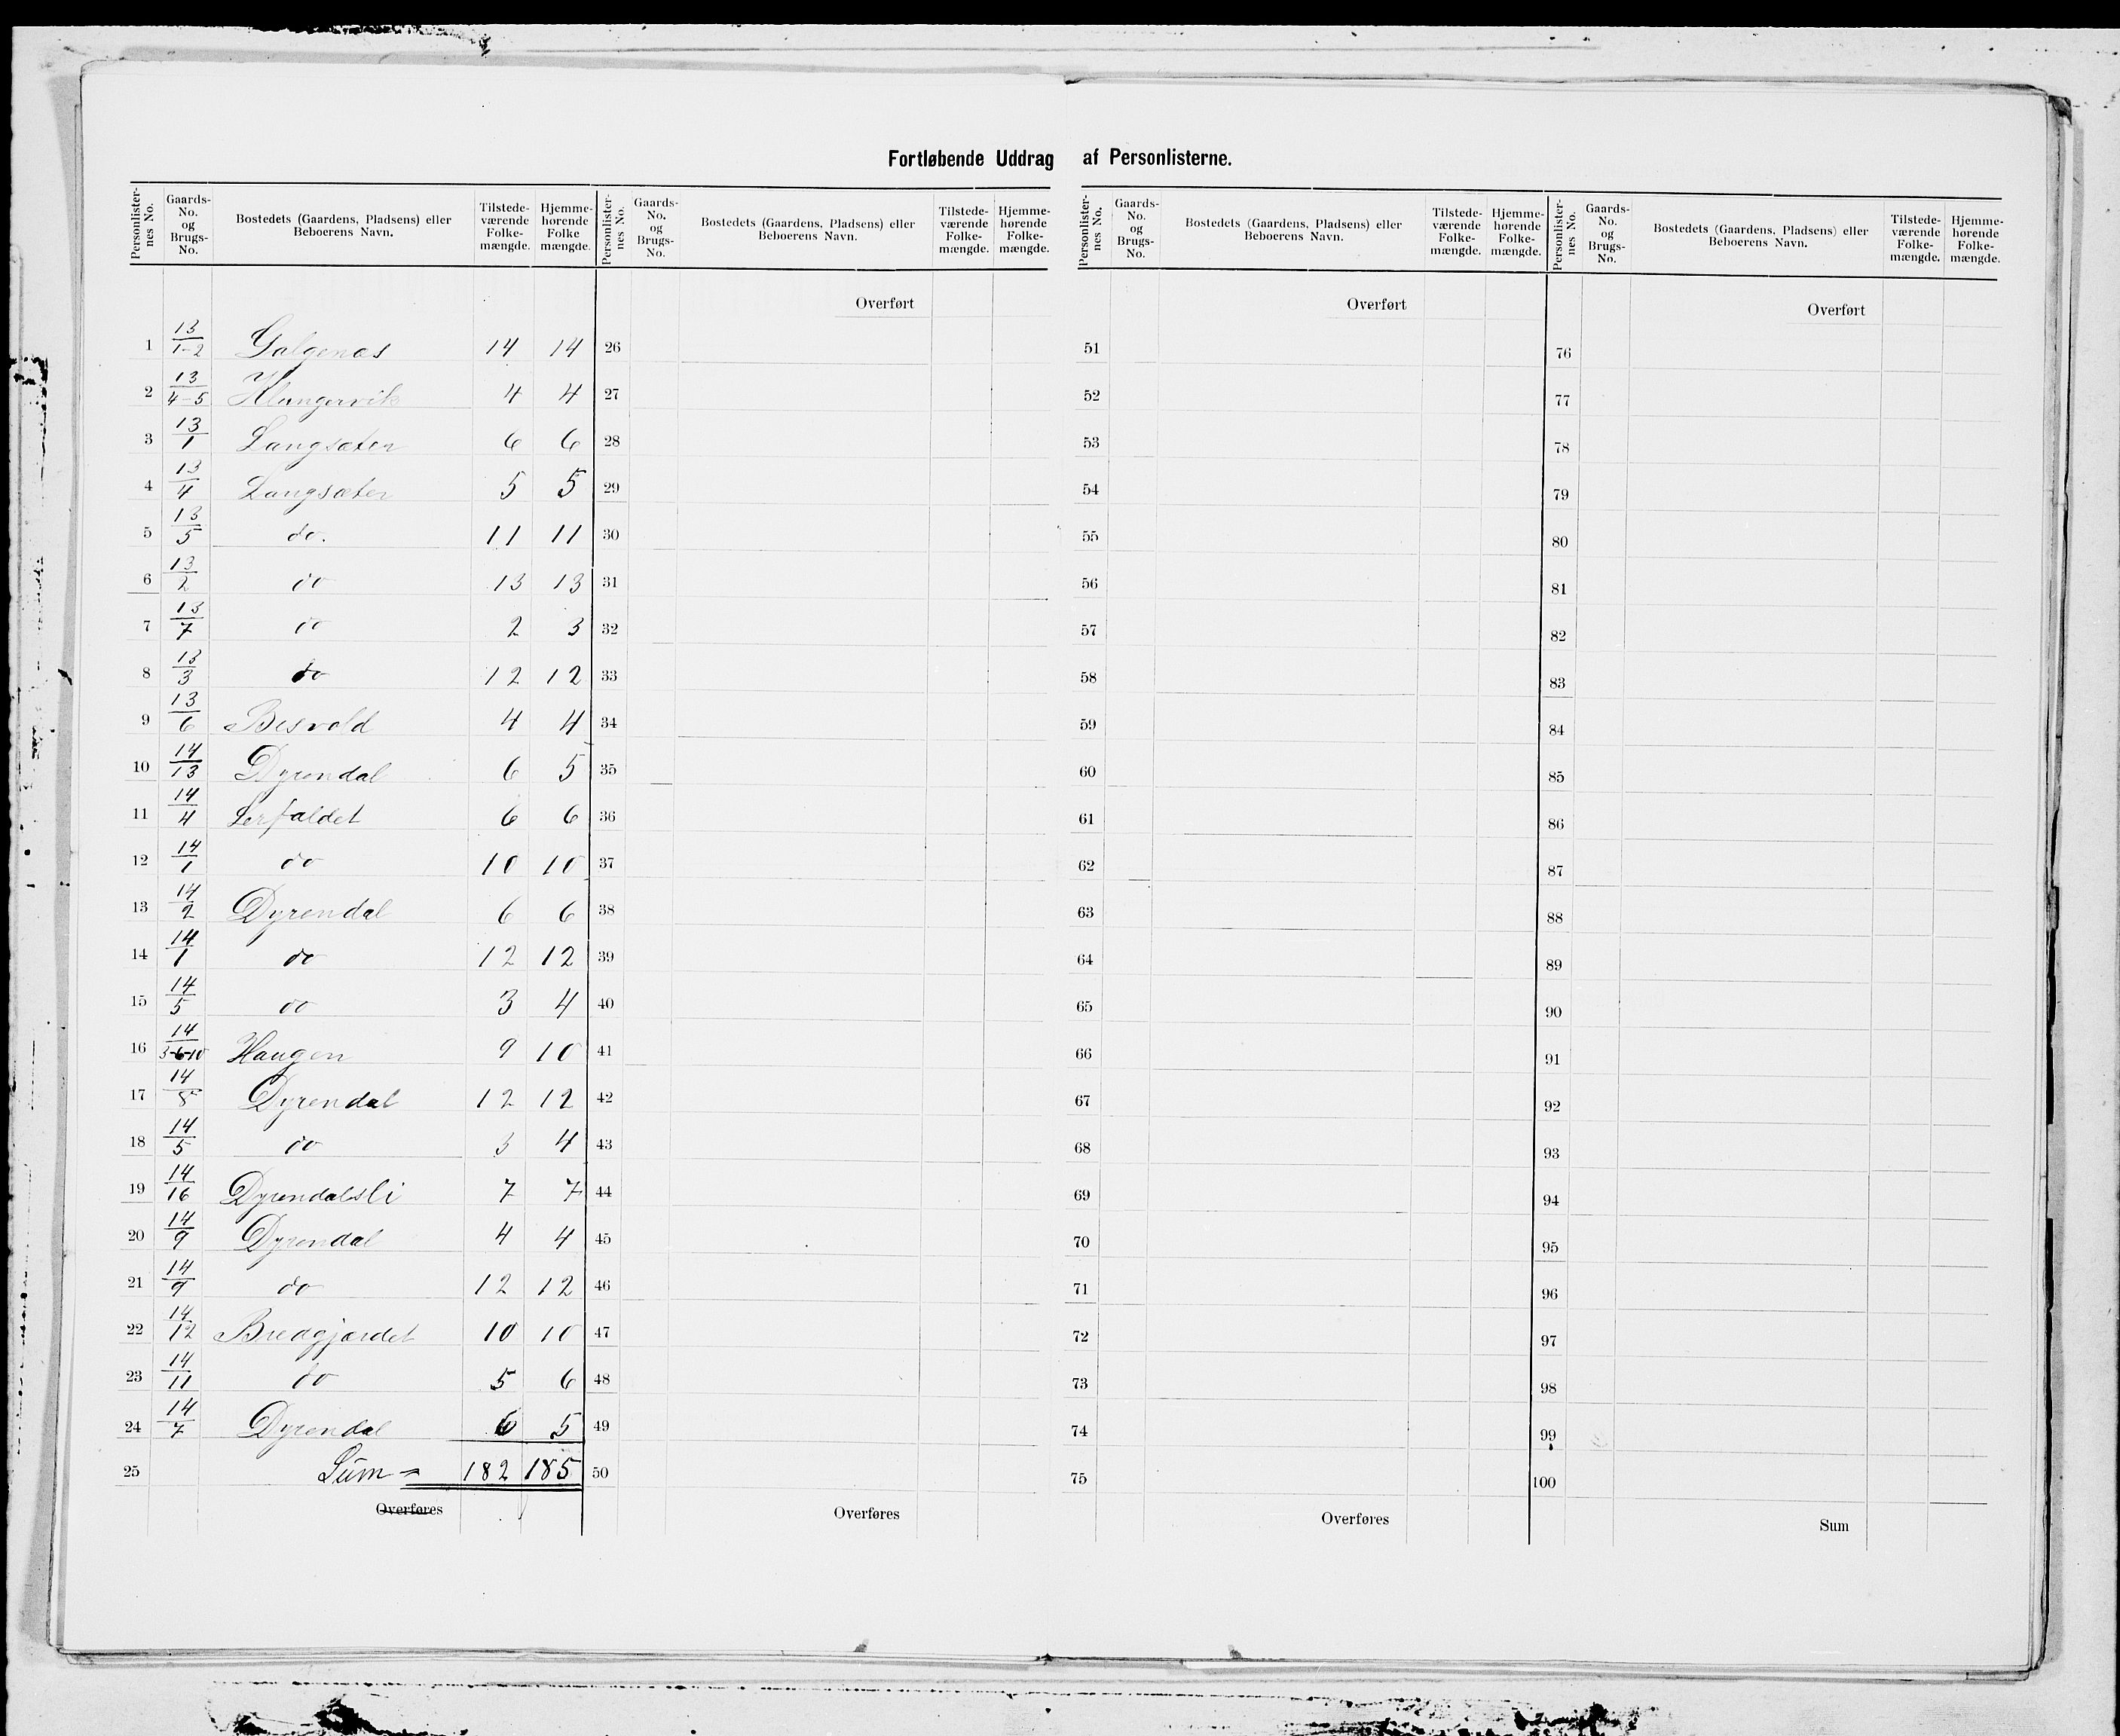 Fortløbende Uddrag af Personlisterne.
Personlisternes No. Gaards-No. og Brugs-No. Bostedets (Gaardens, Pladsens) eller Beboerens Navn. Tilstedeværende Folkemængde. Hjemmehørende Folke mængde. Personlisternes No. Gaards-No. og Brugs-No. Bostedets (Gaardens, Pladsens) eller Beboerens Navn. Tilstedeværende Folkemængde. Hjemmehørende Folkemængde. Personlisternes No. Gaards-No. og Brugs-No. Bostedets (Gaardens, Pladsens) eller Beboerens Navn. Tilstedeværende Folkemængde. Hjemmehørende Folkemængde. Personlisternes No. Gaards-No. og Brugs-No. Bostedets (Gaardens, Pladsens) eller Beboerens Navn. Tilstedeværende Folkemængde. Hjemmehørende Folkemængde.
Overført Overført Overført
1 13/1-2 Galgenæs 14 14 26 51 76
2 13/4-5 Klungervik 4 4 27 52 77
3 13/1 Langsæter 6 6 28 53 78
4 13/4 Langsæter 5 5 29 54 79
5 13/5 do. 11 11 30 55 80
6 13/2 do 13 13 31 56 81
7 13/7 do 2 3 32 57 82
8 13/3 do 12 12 33 58 83
9 13/6 Besvold 4 4 34 59 84
10 14/13 Dyrendal 6 5 35 60 85
11 14/4 Lerfaldet 6 6 36 61 86
12 14/1 do 10 10 37 62 87
13 14/2 Dyrendal 6 6 38 63 88
14 14/1 do 12 12 39 64 89
15 14/5 do 3 4 40 65 90
16 14/3-6-10 Haugen 9 10 41 66 91
17 14/8 Dyrendal 12 12 42 67 92
18 14/5 do 3 4 43 68 93
19 14/16 Dyrendalsli 7 7 44 69 94
20 14/9 Dyrendal 4 4 45 70 95
21 14/9 do 12 12 46 71 96
22 14/12 Bredgjærdet 10 10 47 72 97
23 14/11 do 5 6 48 73 98
24 14/7 Dyrendal 6 5 49 74 99
25 Sum = 182 185 50 75 100
Overføres Overføres Overføres Sum